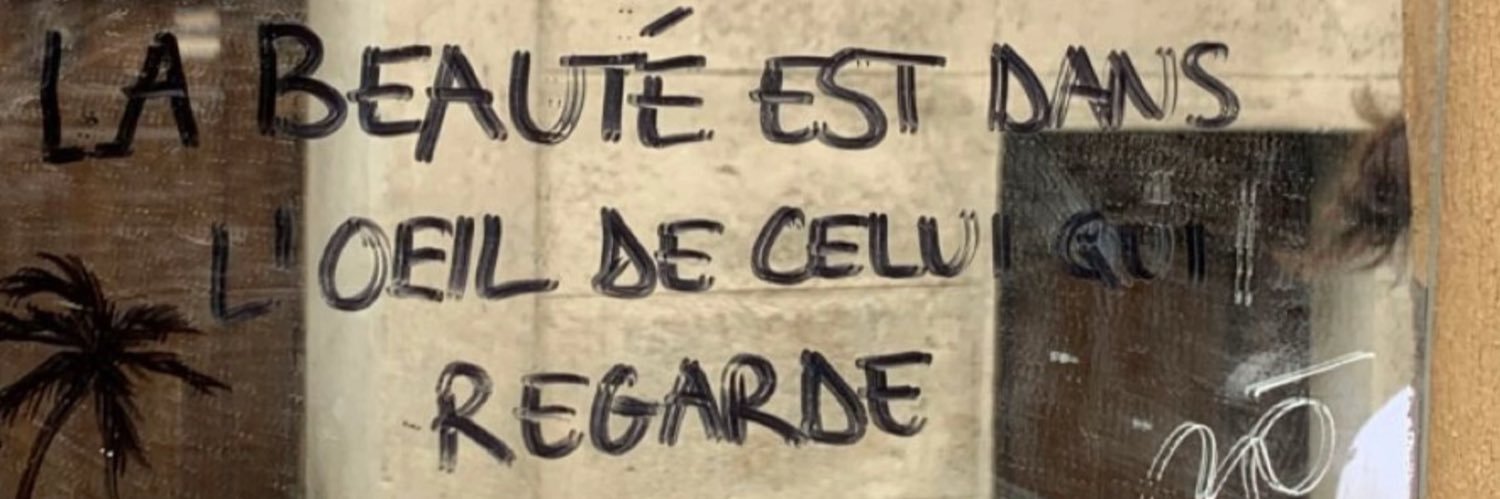 LA BEAUTÉ EST DANS
L'OEIL DE CELUI QUI
REGARDE